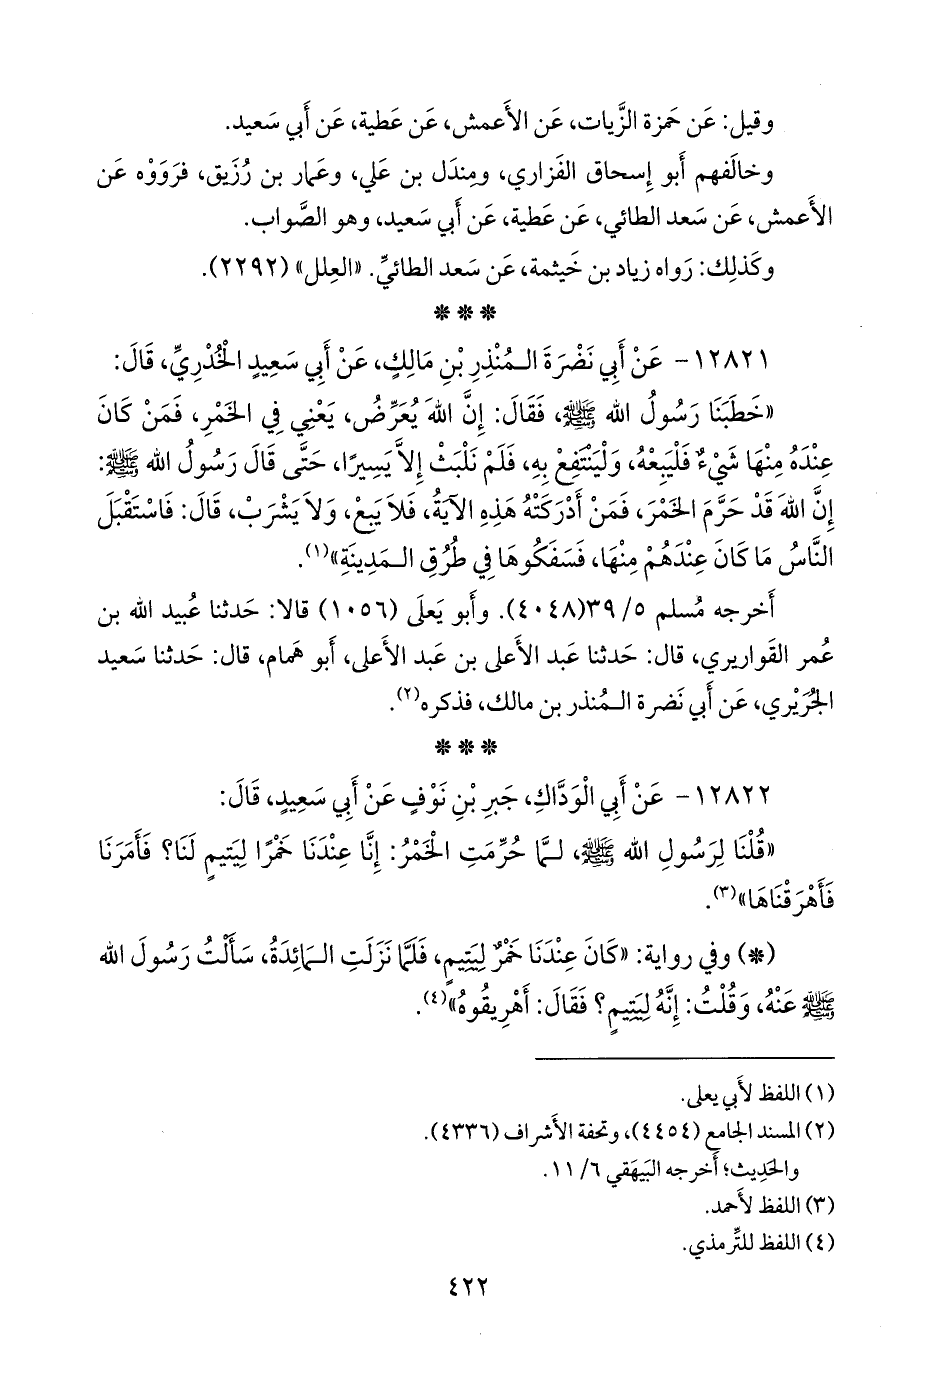 وقيل: عَن حَمزة الزَّيات، عَن الأَعمش، عَن عَطية، عَن أَبي سَعيد.
وخالَفهم أَبو إِسحاق الفَزاري، ومِندَل بن عَلي، وعَمار بن رُزَيق، فرَوَوْه عَن
الأَعمش، عَن سَعد الطائي، عَن عَطية، عَن أَبي سَعيد، وهو الصَّواب.
وكَذلِك: رَواه زياد بن خَيثمة، عَن سَعد الطائيِّ. «العِلل» (٢٢٩٢).
* * *
١٢٨٢١- عَنْ أَبِي نَضْرَةَ الـمُنْذِرِ بْنِ مَالِكٍ، عَنْ أَبِي سَعِيدٍ الْخُدْرِيِّ، قَالَ:
«خَطَبَنَا رَسُولُ الله ﷺ، فَقَالَ: إِنَّ اللهَ يُعَرِّضُ، يَعْنِي فِي الخَمْرِ، فَمَنْ كَانَ
عِنْدَهُ مِنْهَا شَيْءٌ فَلْيَبِعْهُ، وَلْيَنْتَفِعْ بِهِ، فَلَمْ نَلْبَثْ إِلاَّ يَسِيرًا، حَتَّى قَالَ رَسُولُ الله ﷺ:
إِنَّ اللهَ قَدْ حَرَّمَ الخَمْرَ، فَمَنْ أَدْرَكَتْهُ هَذِهِ الآيَةُ، فَلاَ يَبِعْ، وَلاَ يَشْرَبْ، قَالَ: فَاسْتَقْبَلَ
النَّاسُ مَا كَانَ عِنْدَهُمْ مِنْهَا، فَسَفَكُوهَا فِي طُرُقِ الـمَدِينَةِ»(١).
أَخرجه مُسلم ٥/ ٣٩(٤٠٤٨). وأَبو يَعلَى (١٠٥٦) قالا: حَدثنا عُبيد الله بن
عُمر القَواريري، قال: حَدثنا عَبد الأَعلى بن عَبد الأَعلى، أَبو هَمام، قال: حَدثنا سَعيد
الجُرَيْري، عَن أَبي نَضرة الـمُنذر بن مالك، فذكره(٢).
* * *
١٢٨٢٢- عَنْ أَبِي الْوَدَّاكِ، جَبرِ بْنِ نَوْفٍ عَنْ أَبِي سَعِيدٍ، قَالَ:
«قُلْنَا لِرَسُولِ الله ﷺ، لـمَّا حُرِّمَتِ الْخَمْرُ: إِنَّا عِنْدَنَا خَمْرًا لِيَتِيمٍ لَنَا؟ فَأَمَرَنَا
فَأَهْرَقْنَاهَا»(٣).
(*) وفي رواية: «كَانَ عِنْدَنَا خَمْرٌ لِيَتِيمٍ، فَلَمَّا نَزَلَتِ الـمَائِدَةُ، سَأَلْتُ رَسُولَ الله
ﷺ عَنْهُ، وَقُلْتُ: إِنَّهُ لِيَتِيمٍ؟ فَقَالَ: أَهْرِيقُوهُ»(٤).
(١) اللفظ لأَبي يعلى.
(٢) المسند الجامع (٤٤٥٤)، وتحفة الأَشراف (٤٣٣٦).
والحَدِيث؛ أَخرجه البَيهَقي ٦/ ١١.
(٣) اللفظ لأحمد.
(٤) اللفظ للتِّرمذي.
٤٢٢